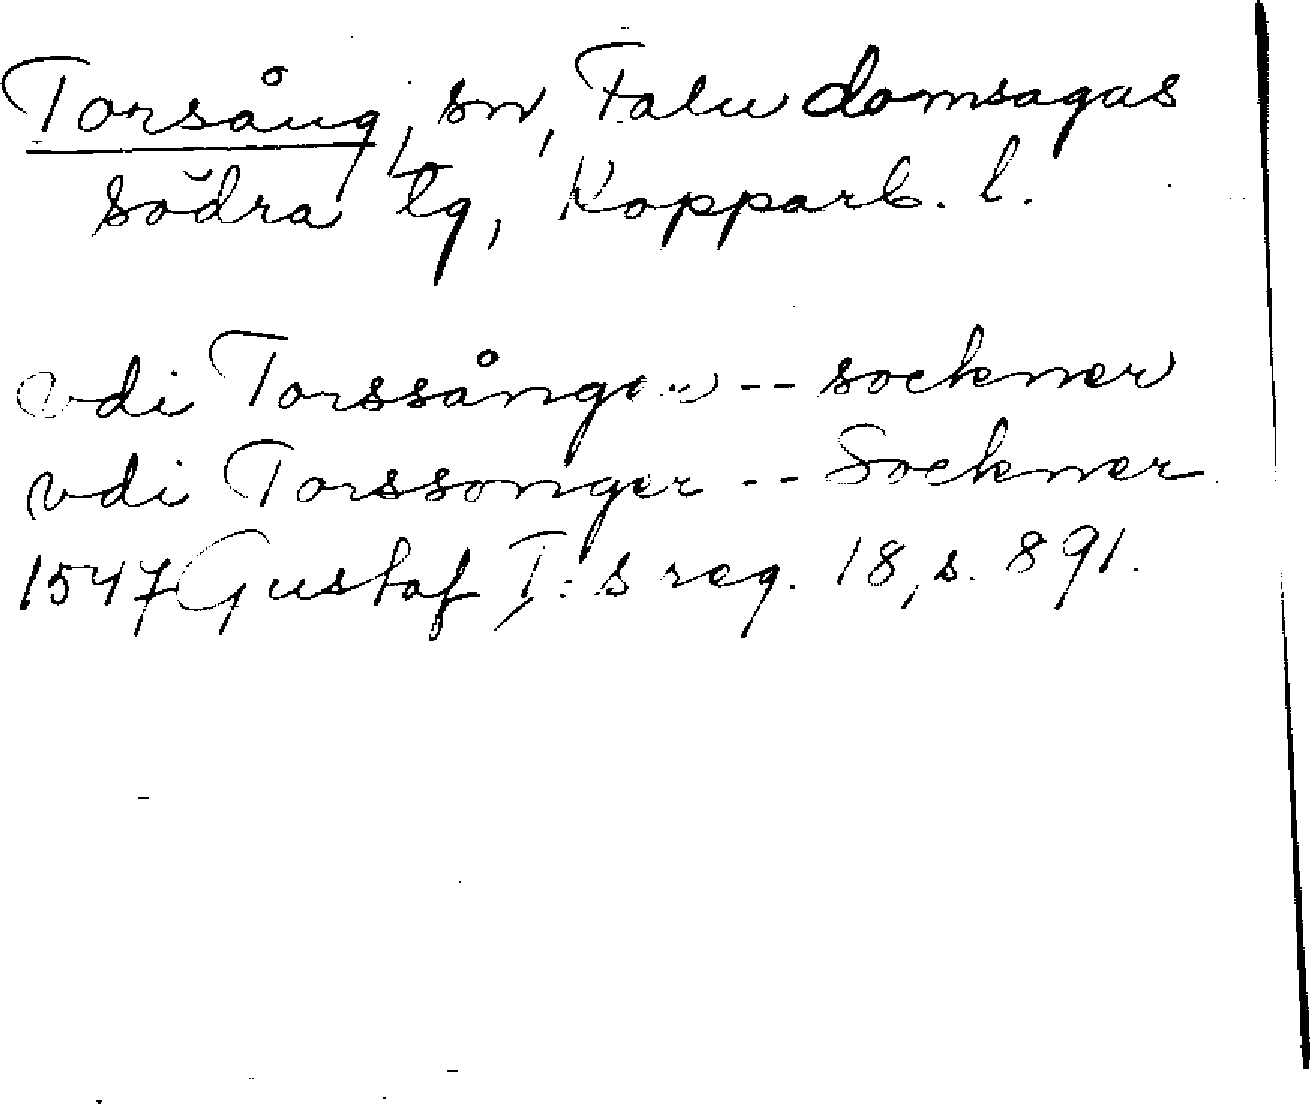 Torsång, sn, Falu domsagas
södra tg, Kopparb. l.
vdi -- sockner
vdi Torssonger -- Sockner
1547 Gustaf I:s reg. 18, s. 891.